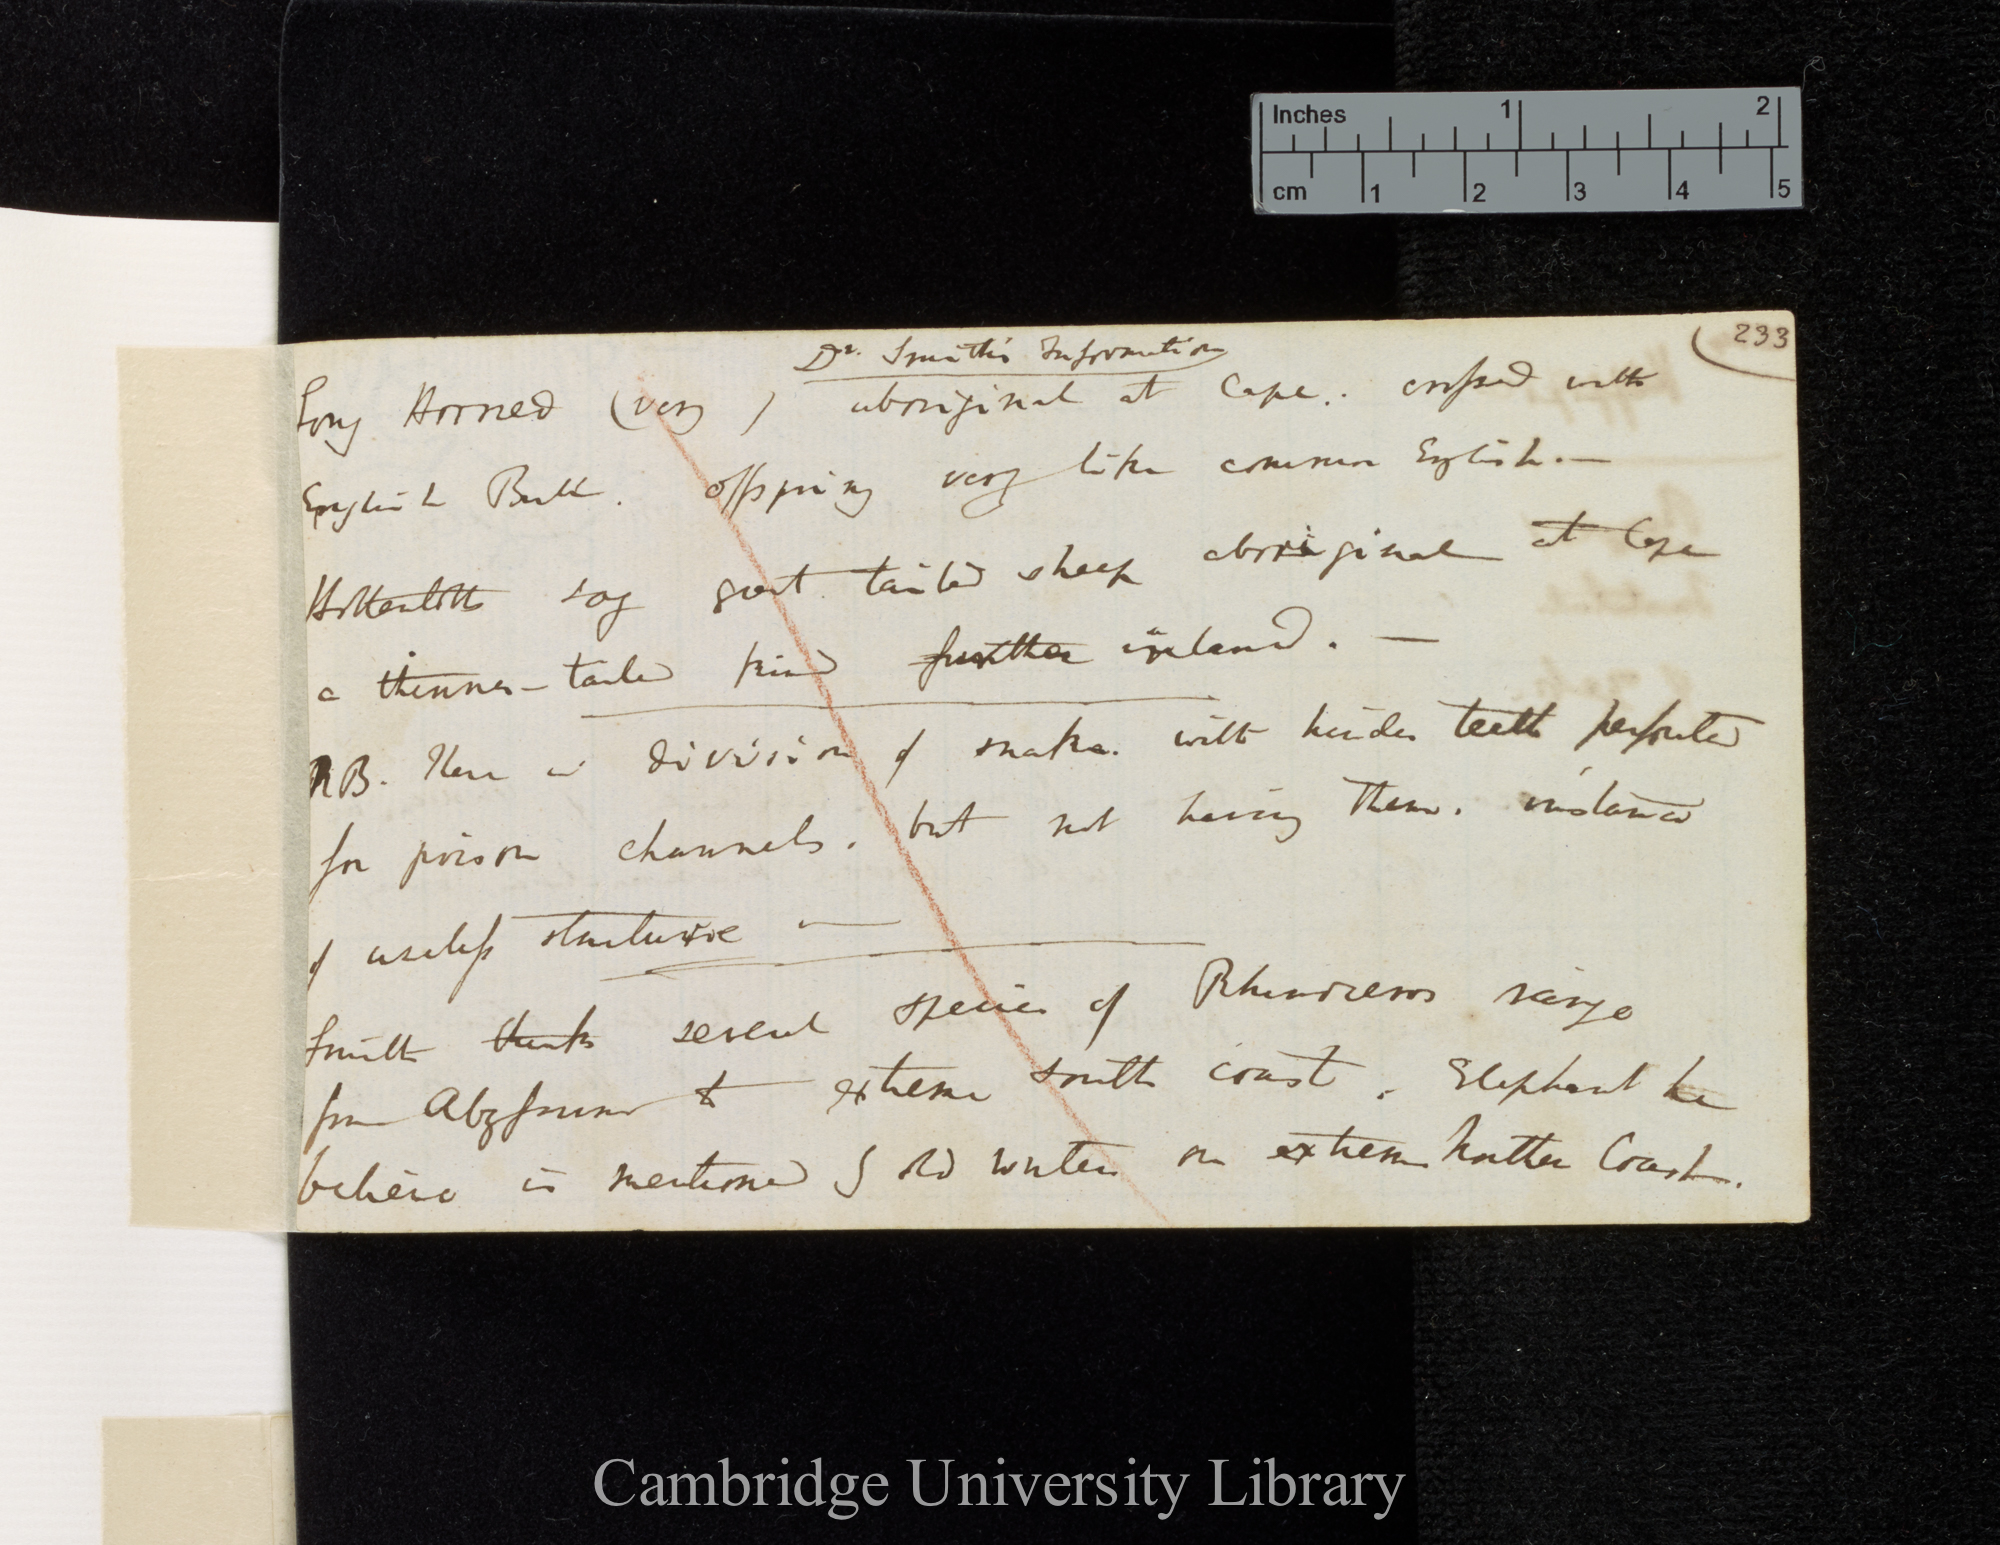 Inches 1 2
cm 1 2 3 4 5
233
Dr. Smith's Information
Long Horned (very ) aboriginal at Cape.. crossed with
English Bull. offspring very like common English.—
Hottentots say great tailed sheep aboriginal at Cape
a thinner-tailed kind further inland. —
NB. There is division of snake. with hinder teeth perforated
for poison channels. but not having them. instance
of useless structure —
Smith thinks several species of Rhinoceros range
from Abyssinia to extreme south coast. Elephant he
believes is mentioned by old writers on extreme norther Coast.
Cambridge University Library